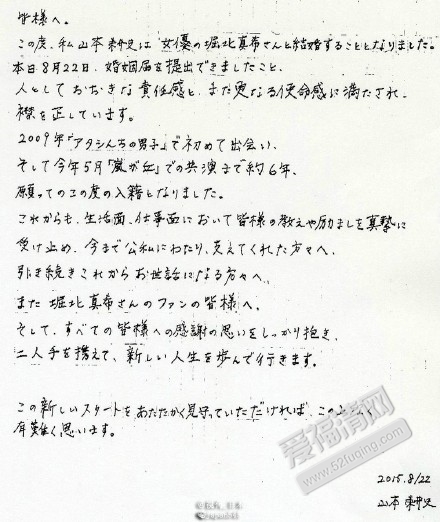 皆様へ。
この度、私山本耕史は女優の堀北真希さんと結婚することとなりました。
本日8月22日、婚姻届を提出できましたこと、
人としておおきな責任感と、また更なる使命感に満たされ、
襟を正しています。
2009年「アタシんちの男子」で初めて出会い、
そして今年5月「嵐が丘」での共演まで約6年、
願ってのこの度の入籍となりました。
これからも、生活面、仕事面において皆様の教えや励ましを真摯に
受け止め、今まで公私にわたり、支えてくれた方々へ、
引き続きこれからお世話になる方々へ、
また堀北真希さんのファンの皆様へ。
そして、すべての皆様への感謝の思いをしっかり抱き、
二人手を携えて、新しい人生を歩んで行きます。
この新しいスタートをあたたかく見守っていただければ、この上なく
有難く思います。
2015.8/22
山本耕史
爱福清网
www.52fuqing.com